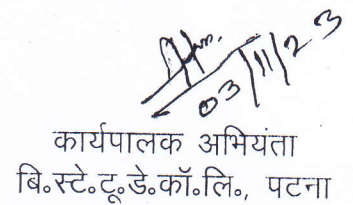 03/11/23
कार्यपालक अभियंता
बि॰स्टे॰टू॰डे॰कॉ॰लि॰, पटना